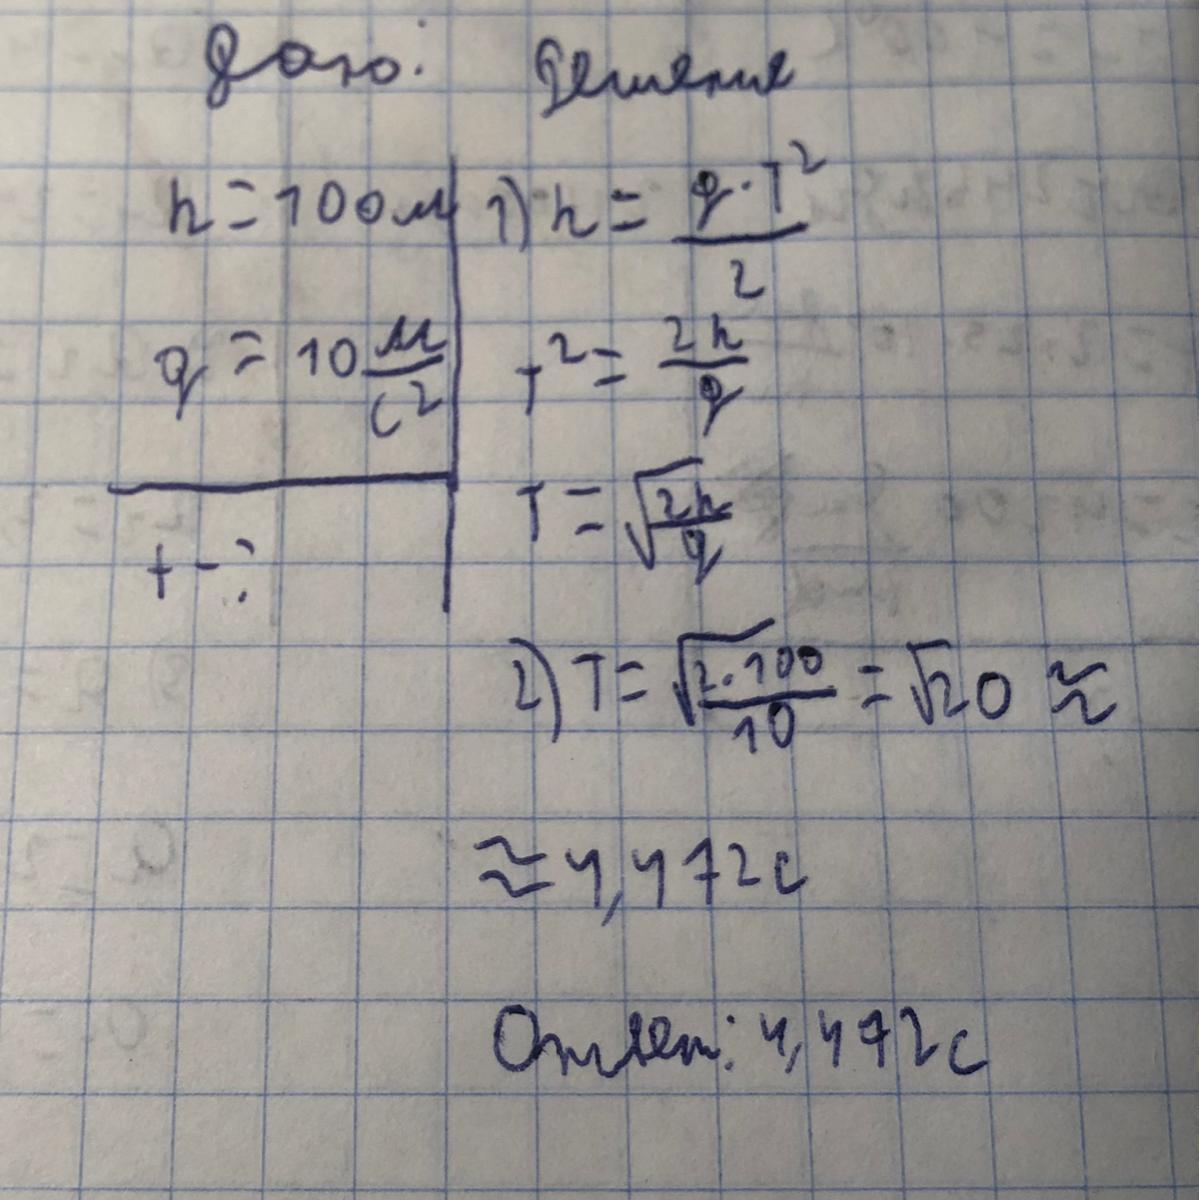 Дано:
h = 100 м
g = 10 м/с²
t - ?
Решение
1) h = g·T²/2
T² = 2h/g
T = √(2h/g)
2) T = √(2·100/10) = √20 ≈
≈ 4,472 с
Ответ: 4,472 с